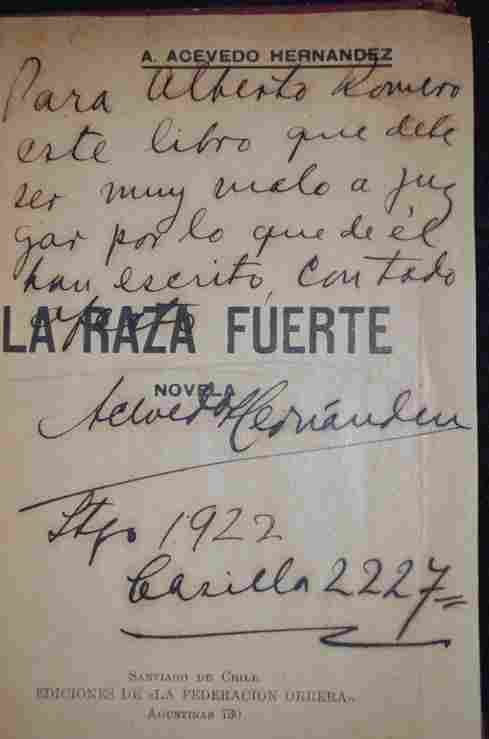 A. ACEVEDO HERNANDEZ
Para Alberto Romero
este libro que debe
ser muy malo a juz
gar por lo que de él
han escrito, con todo
afecto
LA RAZA FUERTE
NOVELA
Acevedo Hernández
Stgo 1922
Casilla 2227=
SANTIAGO DE CHILE
EDICIONES DE «LA FEDERACION OBRERA»
AGUSTINAS 730